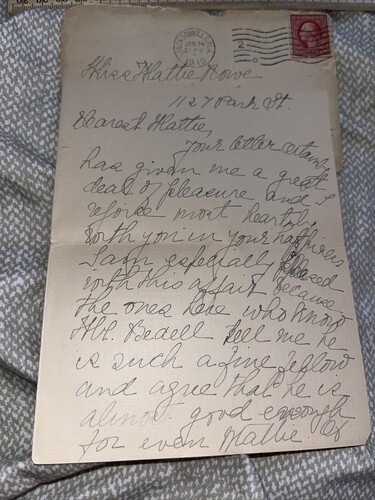 Miss Hattie Rowe
1127 Park St.
Dearest Hattie,
Your letter certainly
has given me a great
deal of pleasure and I
rejoice most heartily
with you in your happiness
I am especially pleased
with this affair because
the ones here who know
Mr. Bedell tell me he
is such a fine fellow
and agree that he is
almost good enough
for even Hattie of